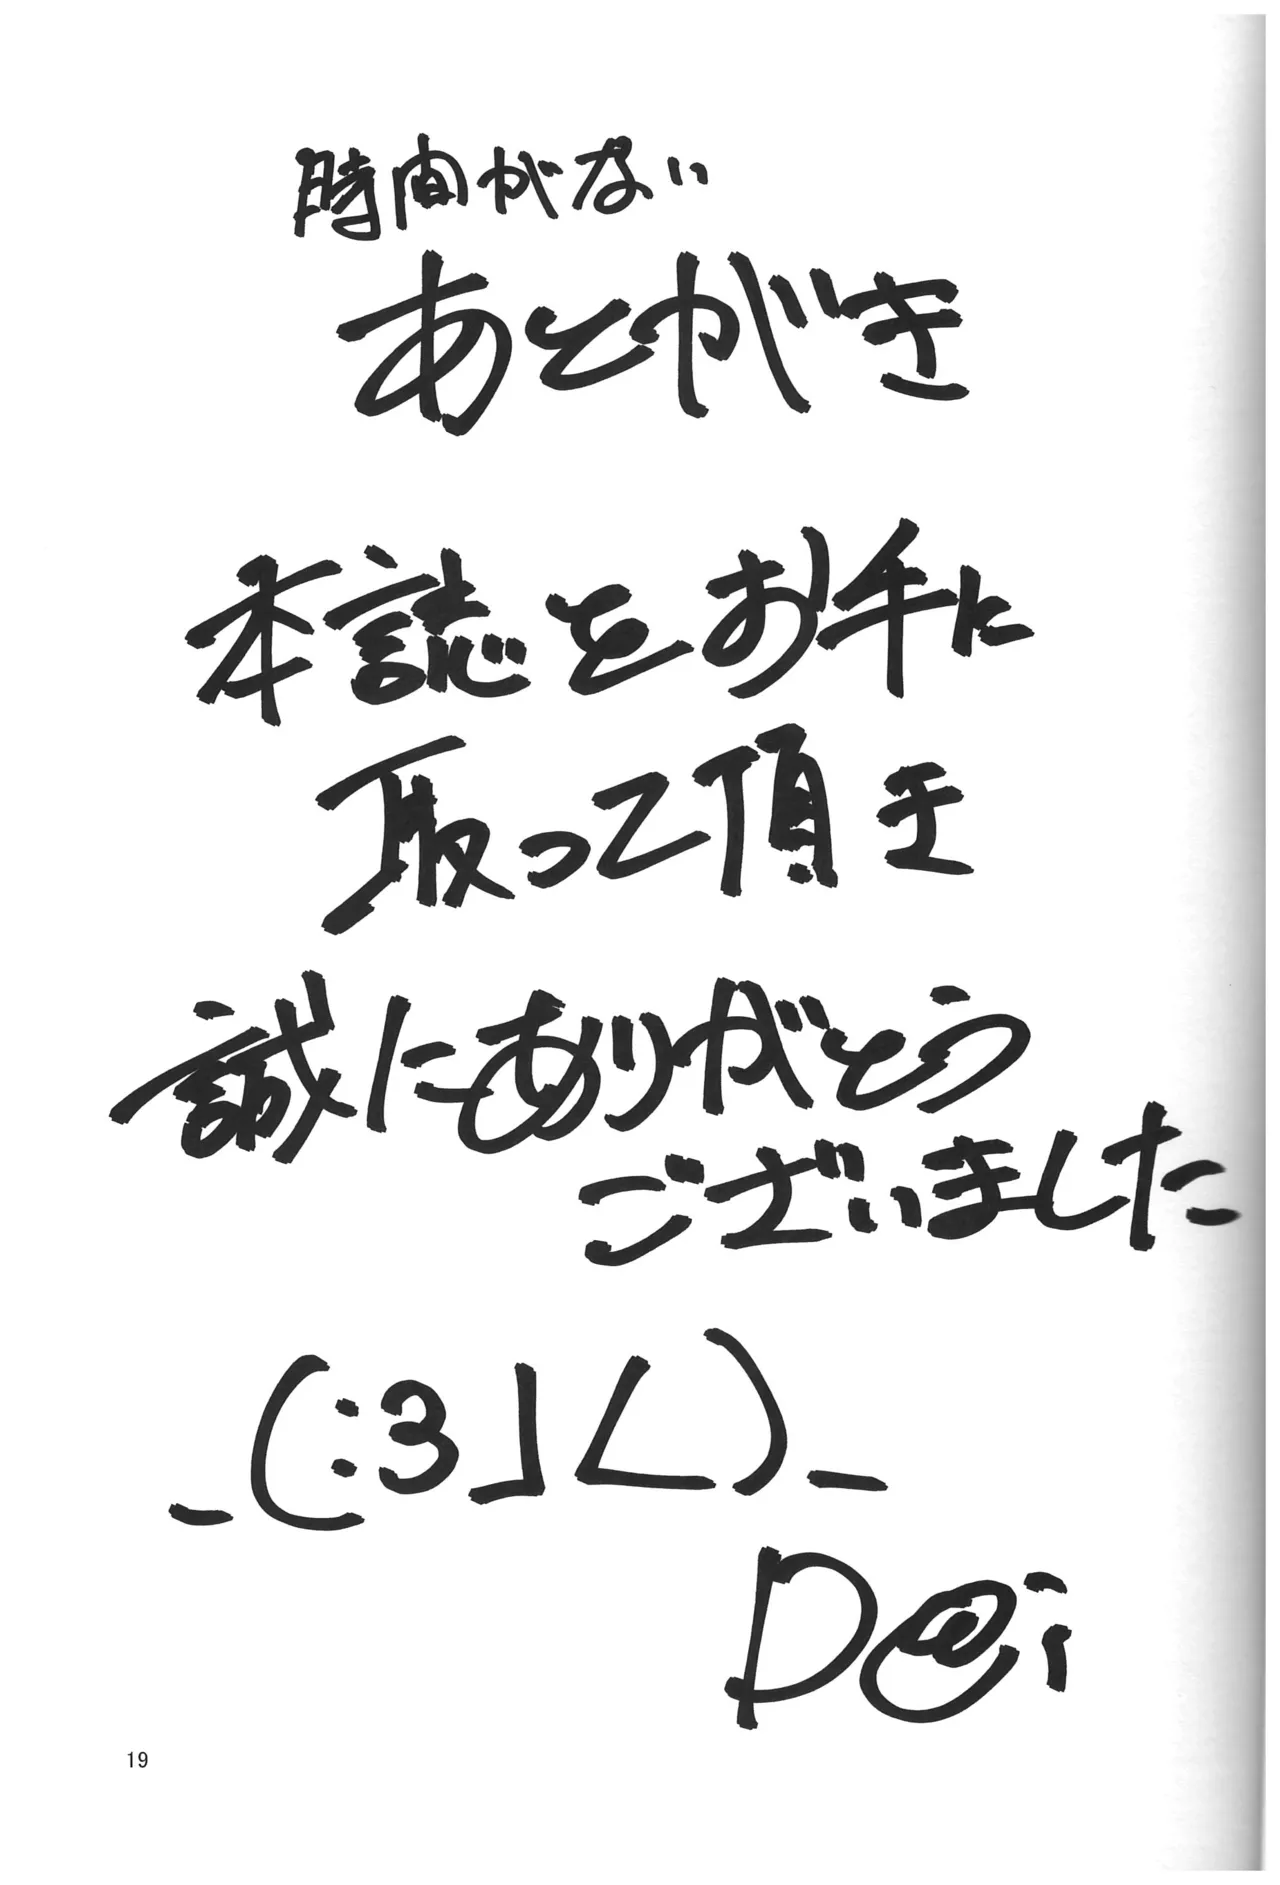 時間がない
あとがき
本誌をお手に
取って頂き
誠にありがとう
ございました
_(:3」∠)_
D@i
19